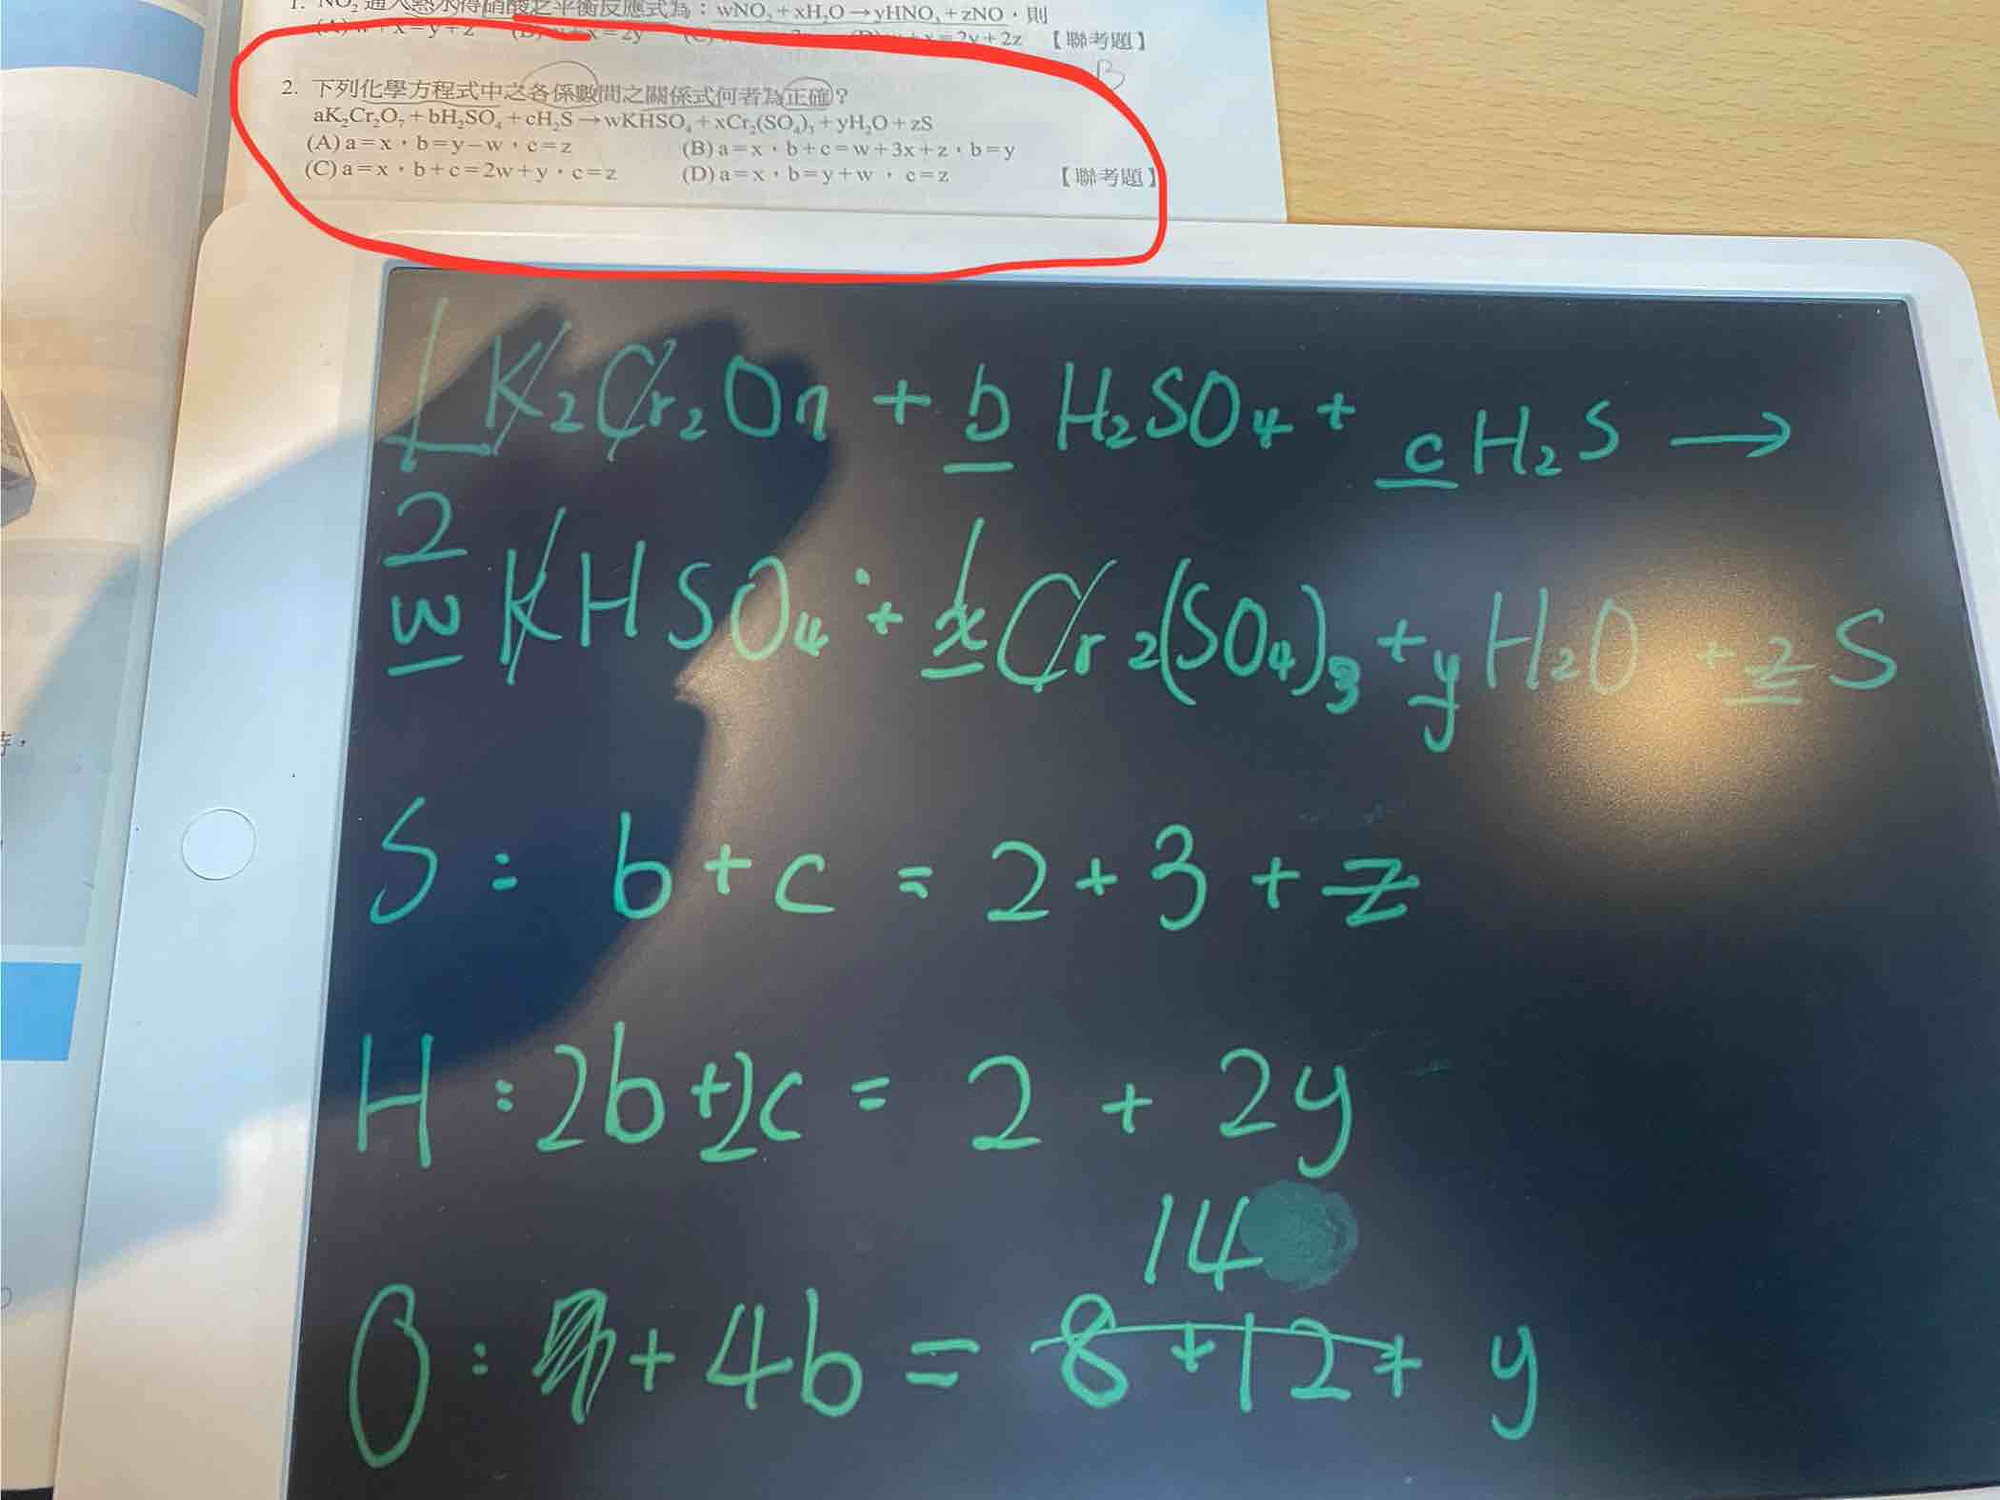 1. NO₂ 通入熱水得硝酸之平衡反應式為：wNO₂+xH₂O→yHNO₃+zNO，則
x=y+z x=2y x=2y+2z 【聯考題】
B
2. 下列化學方程式中之各係數間之關係式何者為正確？
aK₂Cr₂O₇+bH₂SO₄+cH₂S→wKHSO₄+xCr₂(SO₄)₃+yH₂O+zS
(A) a=x，b=y−w，c=z (B) a=x，b+c=w+3x+z，b=y
(C) a=x，b+c=2w+y，c=z (D) a=x，b=y+w，c=z 【聯考題】
1 K₂Cr₂O₇ + b H₂SO₄ + c H₂S →
2
w KHSO₄ + x Cr₂(SO₄)₃ + y H₂O + z S
1
S : b + c = 2 + 3 + z
H : 2b + 2c = 2 + 2y
14
O : + 4b = 8 + 12 + y